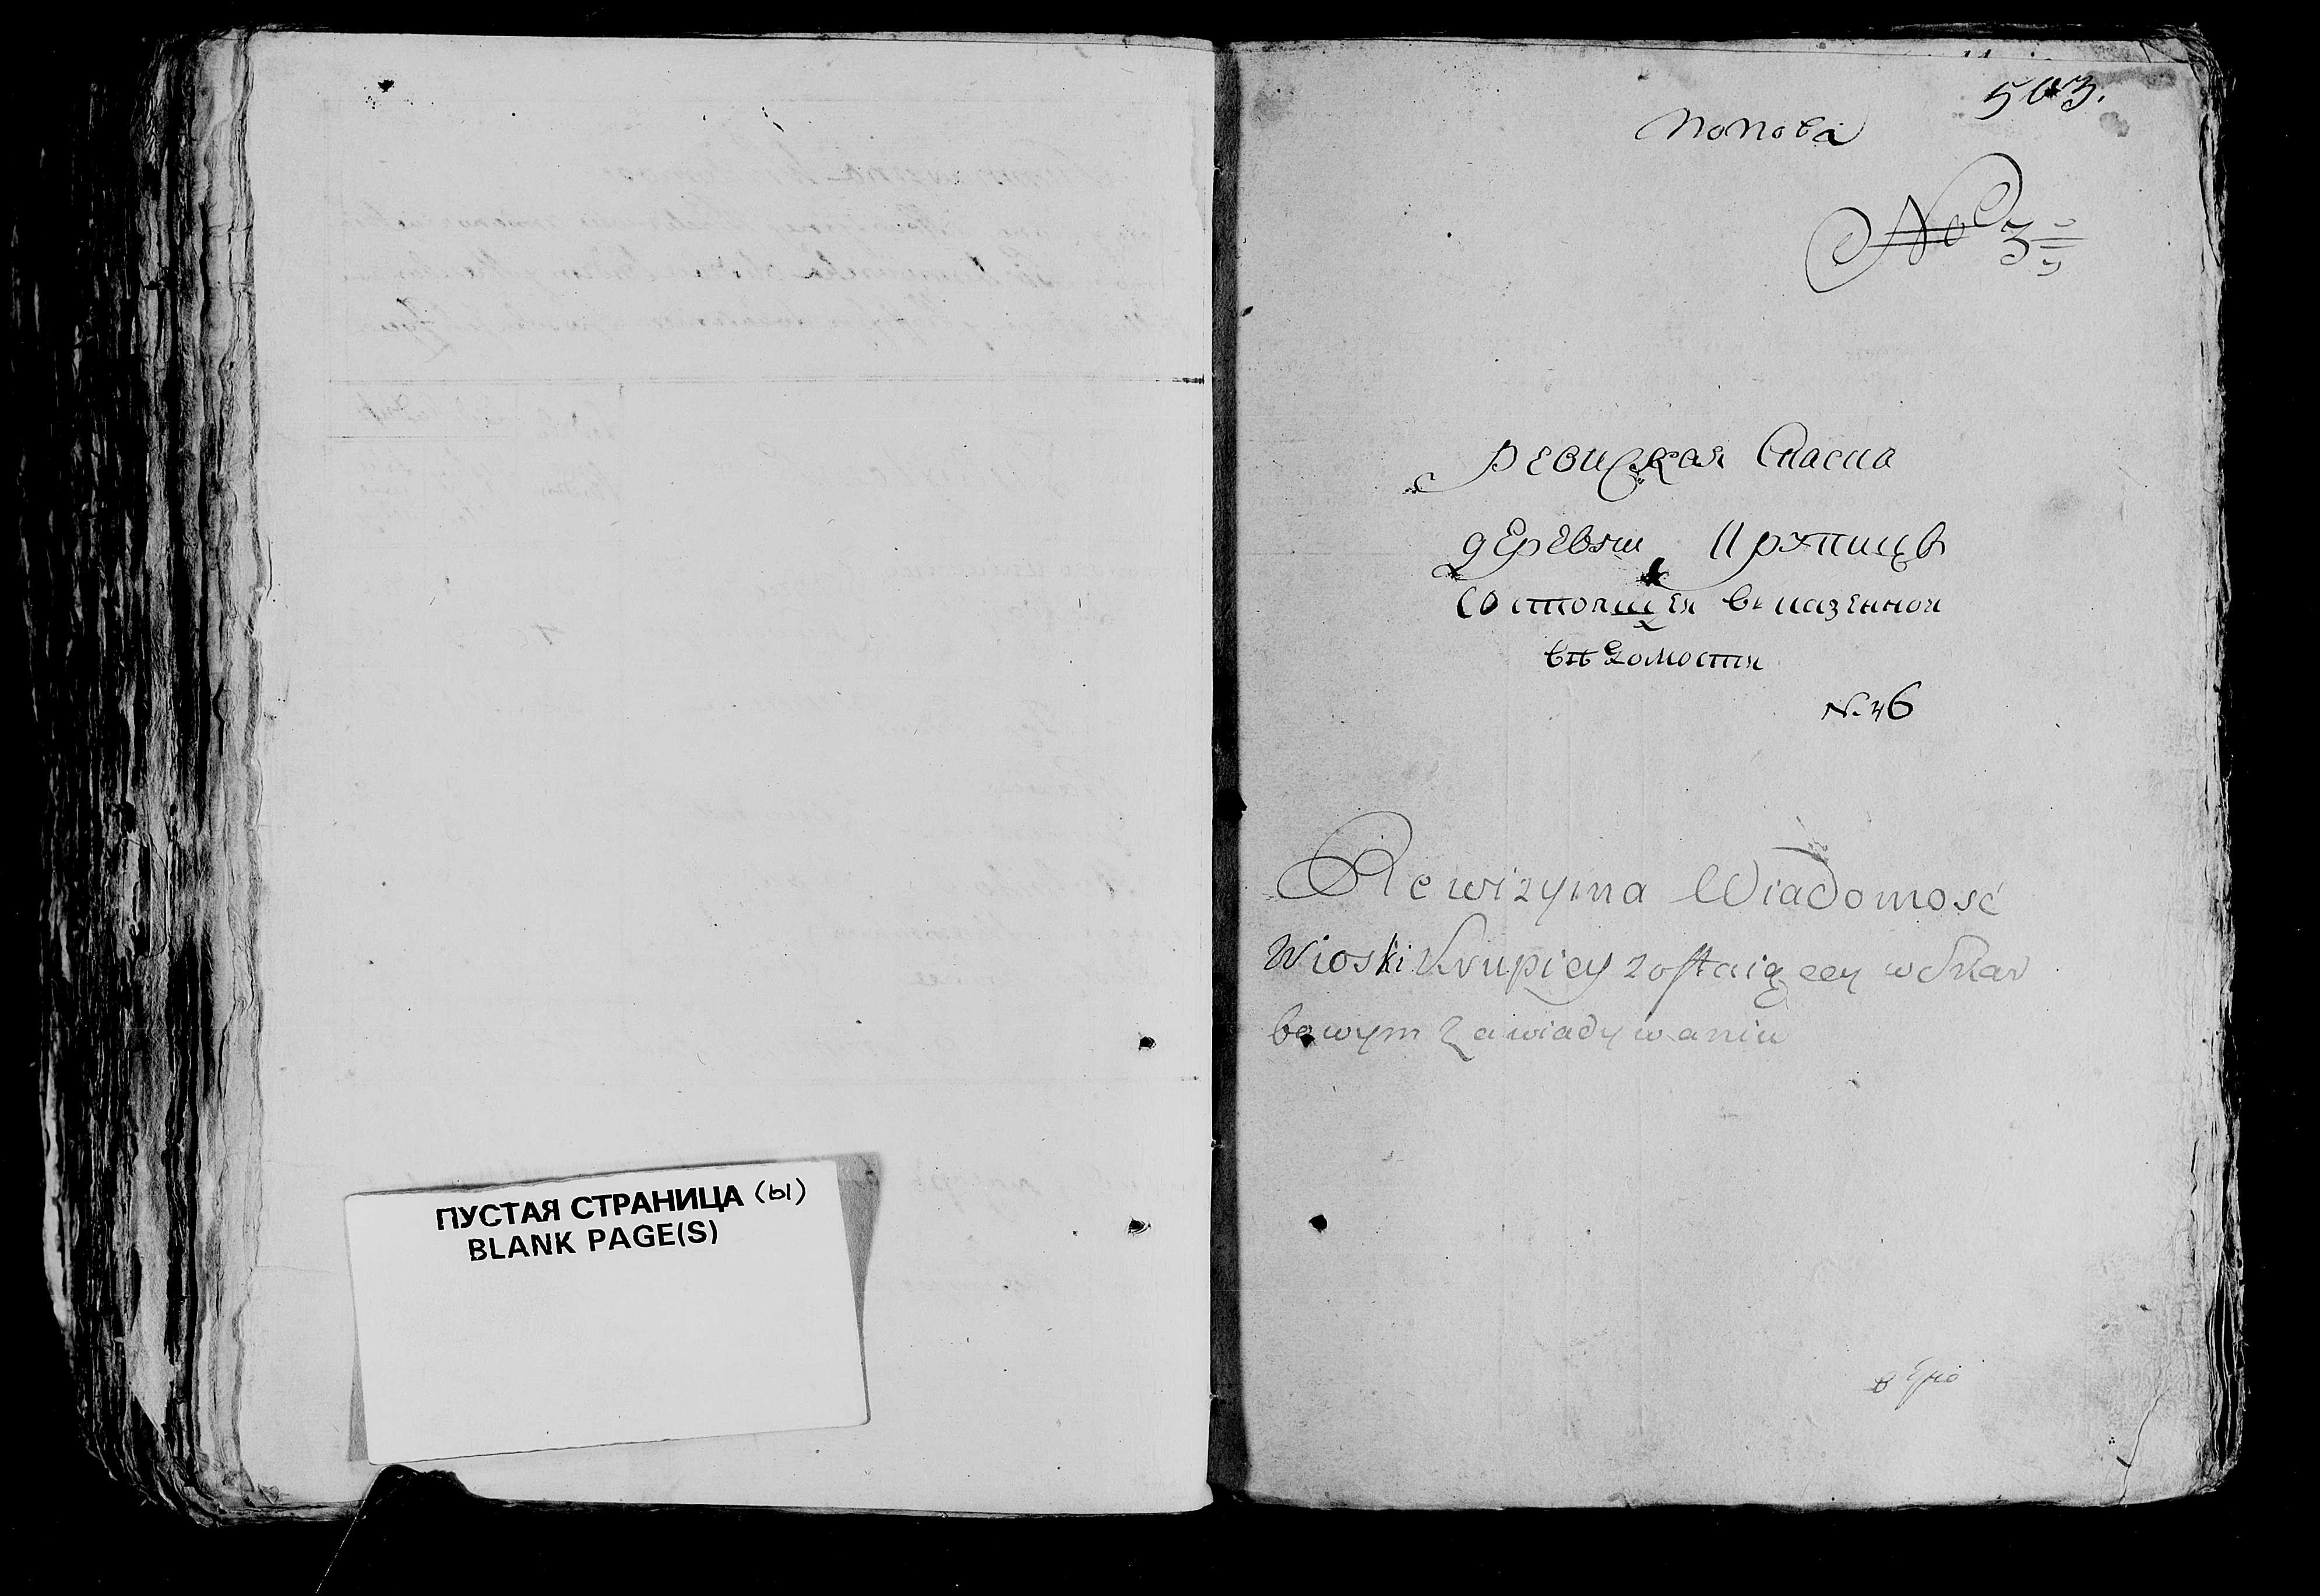 ПУСТАЯ СТРАНИЦА (ы)
BLANK PAGE(S)
503.
Попова
№ 3
Ревизская Скаска
деревни Крупицъ
состоящея въ казенной
вѣдомости
N. 46
Rewizyina Wiadomość
Wioski Krupicy zostaiącey w Skar
bowym Zawiadywaniu